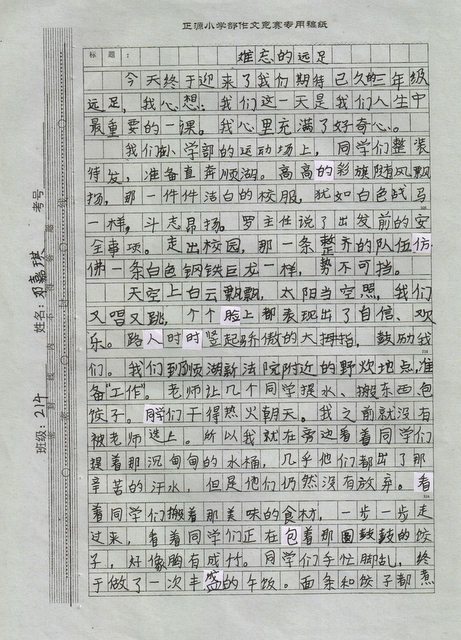 正源小学部作文竞赛专用稿纸
标题： 难忘的远足
今天终于迎来了我们期待已久的三年级
远足，我心想：我们这一天是我们人生中
最重要的一课。我心里充满了好奇心。
我们小学部的运动场上，同学们整装
待发，准备直奔顺湖。高高的彩旗随风飘
扬，那一件件洁白的校服，犹如白色战马
一样，斗志昂扬。罗主任说了出发前的安
全事项。走出校园，那一条整齐的队伍仿
佛一条白色钢铁巨龙一样，势不可挡。
天空上白云飘飘，太阳当空照，我们
又唱又跳，个个脸上都表现出了自信、欢
乐。路人时时竖起骄傲的大拇指，鼓励我
们。我们到顺湖新法院附近的野炊地点准
备“工作”。老师让几个同学提水、搬东西包
饺子。同学们干得热火朝天。我之前就没有
被老师选上。所以我就在旁边看着同学们
提着那沉甸甸的水桶，几乎他们都出了那
辛苦的汗水，但是他们仍然没有放弃。看
着同学们搬着那美味的食材，一步一步走
过来，看着同学们正在包着那圆鼓鼓的饺
子，好像胸有成竹。同学们手忙脚乱，终
于做了一次丰盛的午饭。面条和饺子都煮
班级：214 姓名：邓嘉琪 考号